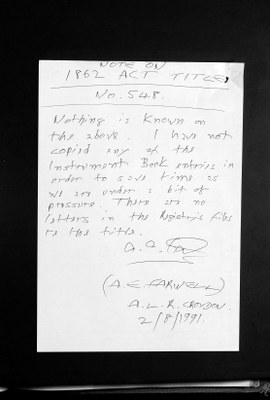 NOTE ON
1862 ACT TITLE,
No. 548.
Nothing is known on
the above. I have not
copied any of the
Instrument Book entries in
order to save time as
we are under a bit of
pressure. There are no
letters in the Registry's files
re this title.
(A.E. FARWELL)
A.L.R. CROYDON.
2/8/1991.